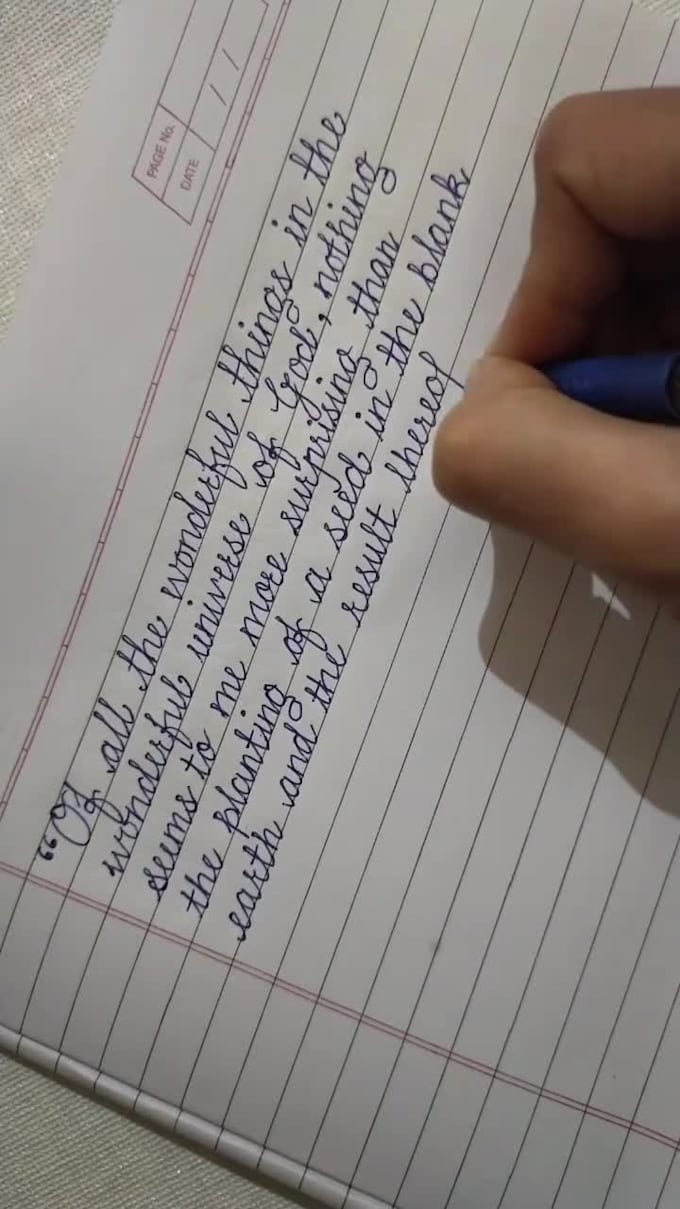 PAGE No.
DATE / /
“Of all the wonderful things in the
wonderful universe of God, nothing
seems to me more surprising than
the planting of a seed in the blank
earth and the result thereof